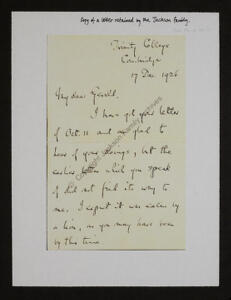 Copy of a letter retained by the Jackson family.
Trinity College
Cambridge
17 Dec. 1926
My dear Gerald,
I have got your letter
of Oct. 11 and am glad to
hear of your doings, but the
earlier letter which you speak
of did not find its way to
me. I expect it was eaten by
a lion, as you may have been
by this time.
Copyright Jackson Family Archives